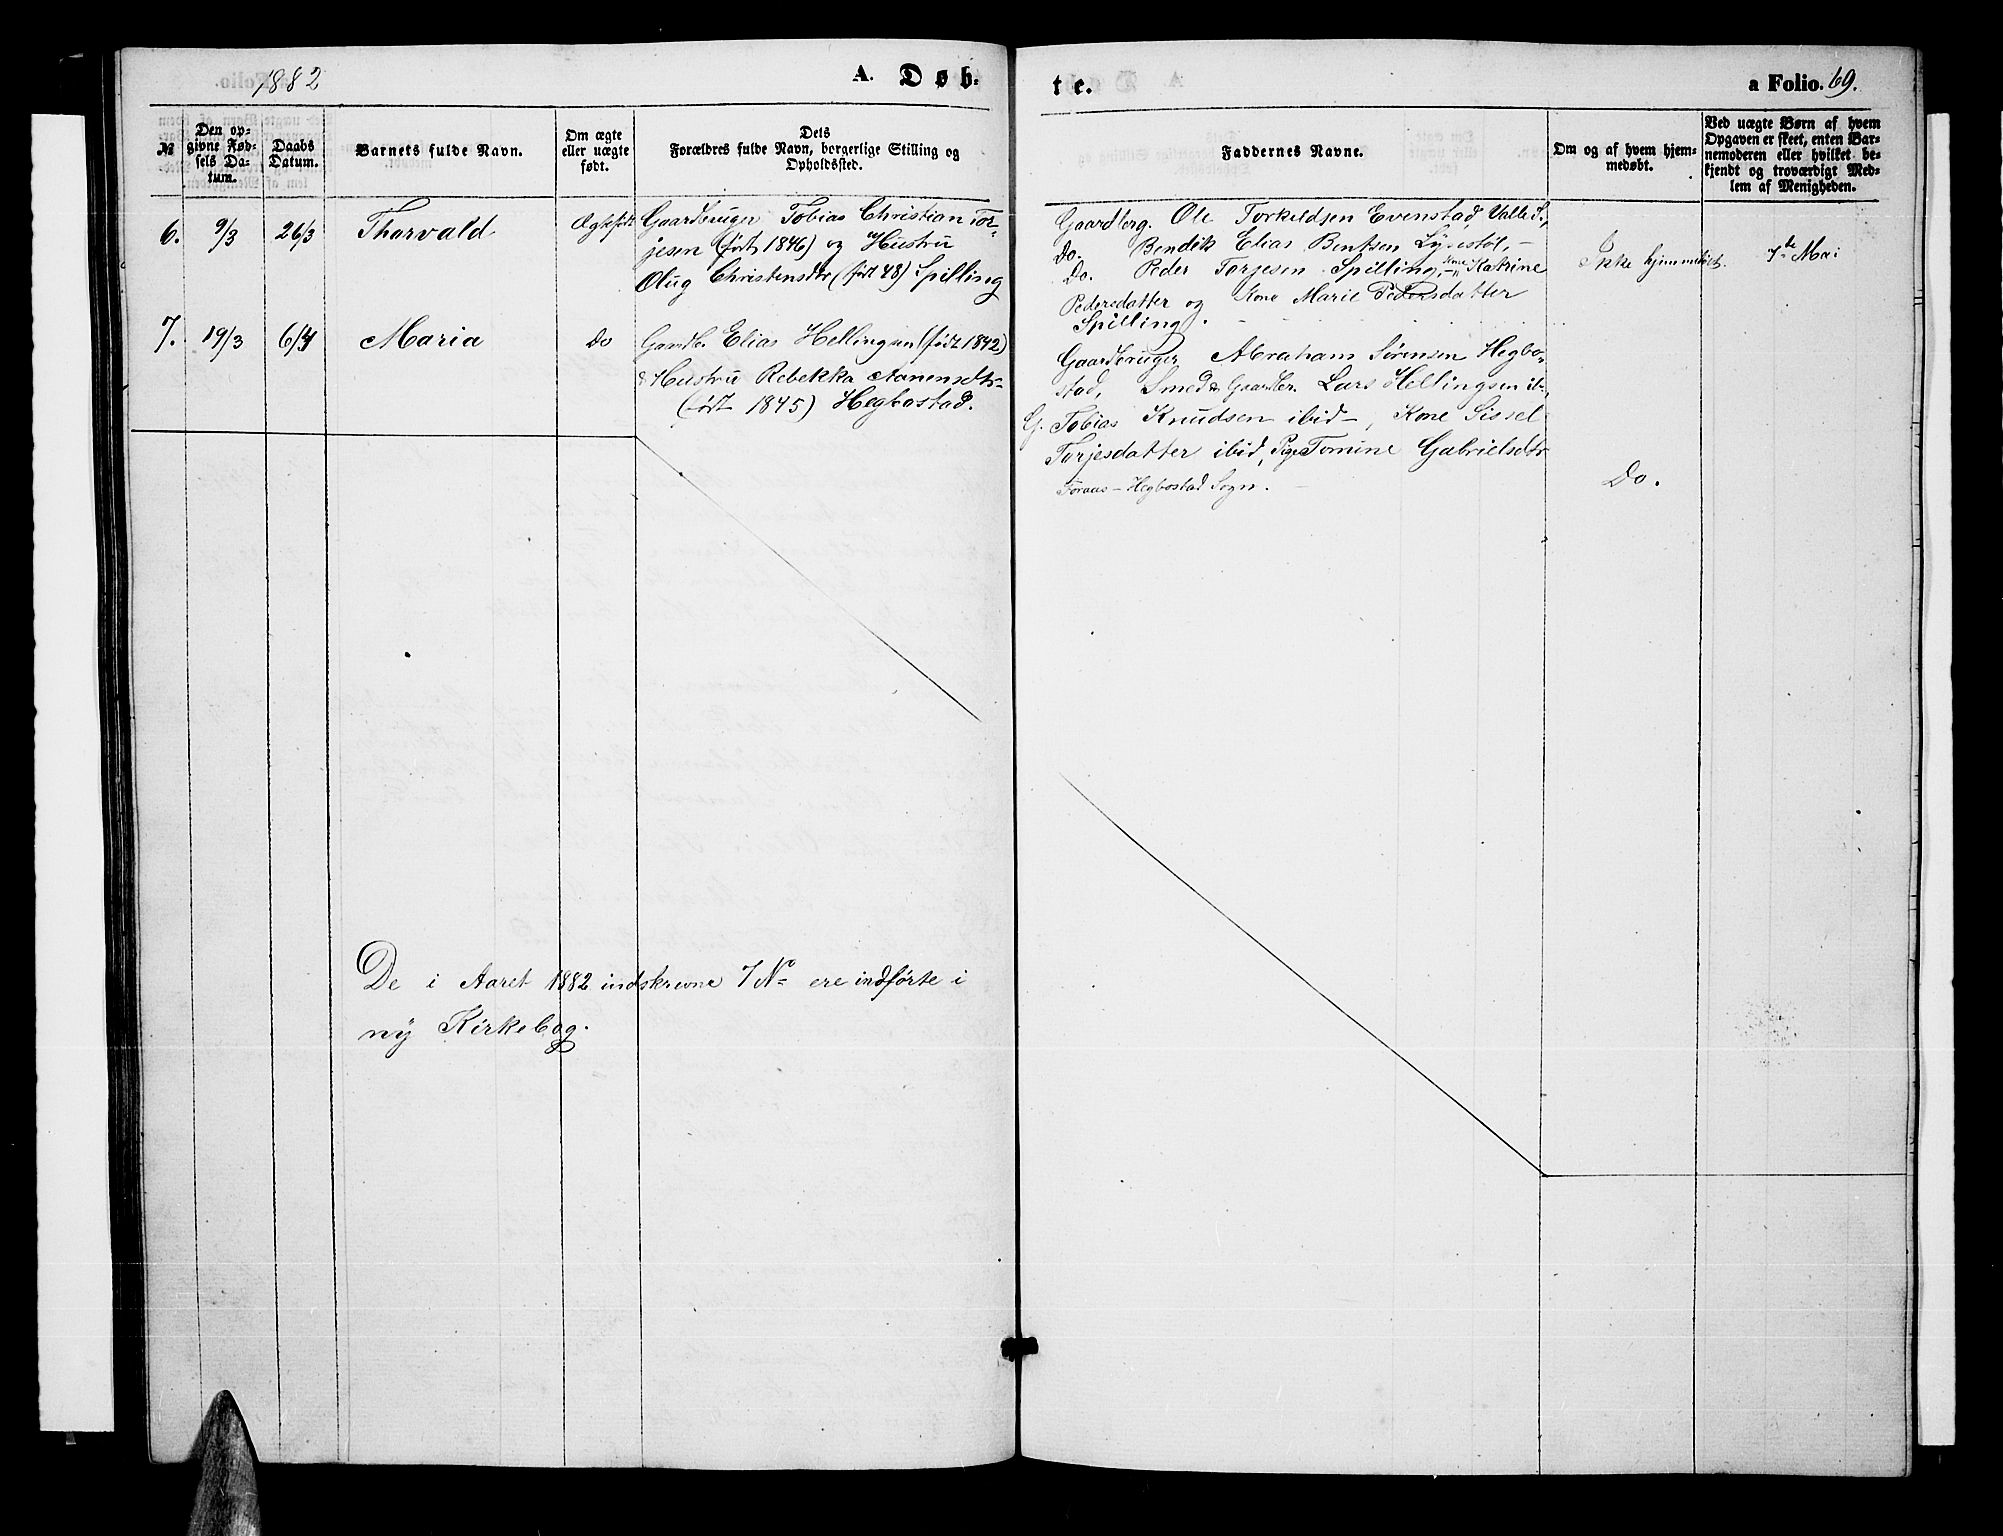 1882
A. Døb-
te.
a Folio. 69.
№
Den op-
givne Fød-
sels Da-
tum.
Daabs
Datum.
Barnets fulde Navn.
Om ægte
eller uægte
født.
Dets
Forældres fulde Navn, borgerlige Stilling og
Opholdssted.
Faddernes Navne.
Om og af hvem hjem-
medøbt.
Ved uægte Børn af hvem
Opgaven er skeet, enten Bar-
nemoderen eller hvilket be-
kjendt og troværdigt Med-
lem af Menigheden.
6.
9/3
26/3
Thorvald
Ægtefødt
Gaardbruger Tobias Christian Tor-
jesen (født 1846) og Hustru
Olug Christensdtr (født 48) Spilling
Gaardbrg. Ole Torkildsen Evenstad, Valle S.,
Do. Bendik Elias Bentsen Lyestøl, –
Do. Peder Torjesen Spilling, Kone Katrine
Pedersdatter og Kone Marie Pedersdatter
Spilling.
Ikke hjemmedøbt.
7de Mai
7.
19/3
6/4
Maria
Do
Gaardbr. Elias Hellingsen (født 1842)
& Hustru Rebekka Aanensdtr
(født 1845) Hegbostad.
Gaardbruger Abraham Sørensen Hegbo-
stad, Smed & Gaardbr. Lars Hellingsen ib.,
G. Tobias Knudsen ibid –, Kone Sissel
Torjesdatter ibid, Pige Tomine Gabrielsdtr
Toraas – Hegbostad Sogn. –
Do.
De i Aaret 1882 indskrevne 7 No ere indførte i
ny Kirkebog.